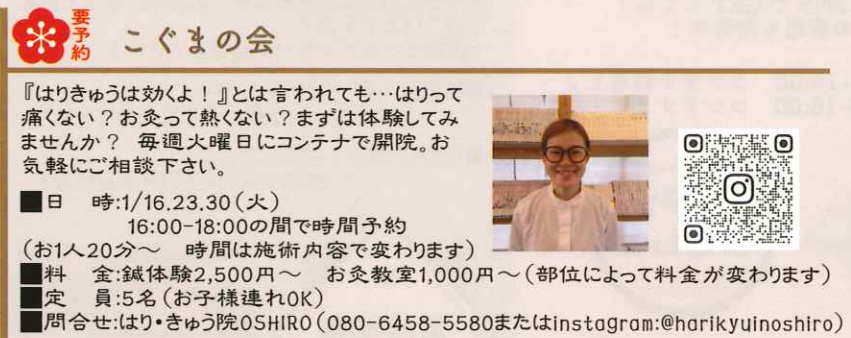 要予約
こぐまの会
『はりきゅうは効くよ！』とは言われても…はりって
痛くない？お灸って熱くない？まずは体験してみ
ませんか？ 毎週火曜日にコンテナで開院。お
気軽にご相談下さい。
■日　時:1/16.23.30(火)
16:00-18:00の間で時間予約
(お1人20分～　時間は施術内容で変わります)
■料　金:鍼体験2,500円～　お灸教室1,000円～(部位によって料金が変わります)
■定　員:5名(お子様連れOK)
■問合せ:はり・きゅう院OSHIRO(080-6458-5580またはinstagram:@harikyuinoshiro)